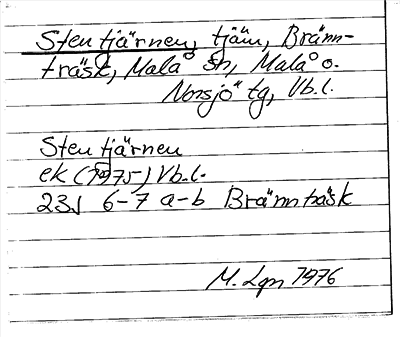 Stentjärnen, tjärn, Bränn-
träsk, Malå sn, Malå o.
Norsjö tg, Vb.l.
Stentjärnen
ek (1975) Vb.l.
23J 6-7 a-b Brännträsk
M. Lgn 1976